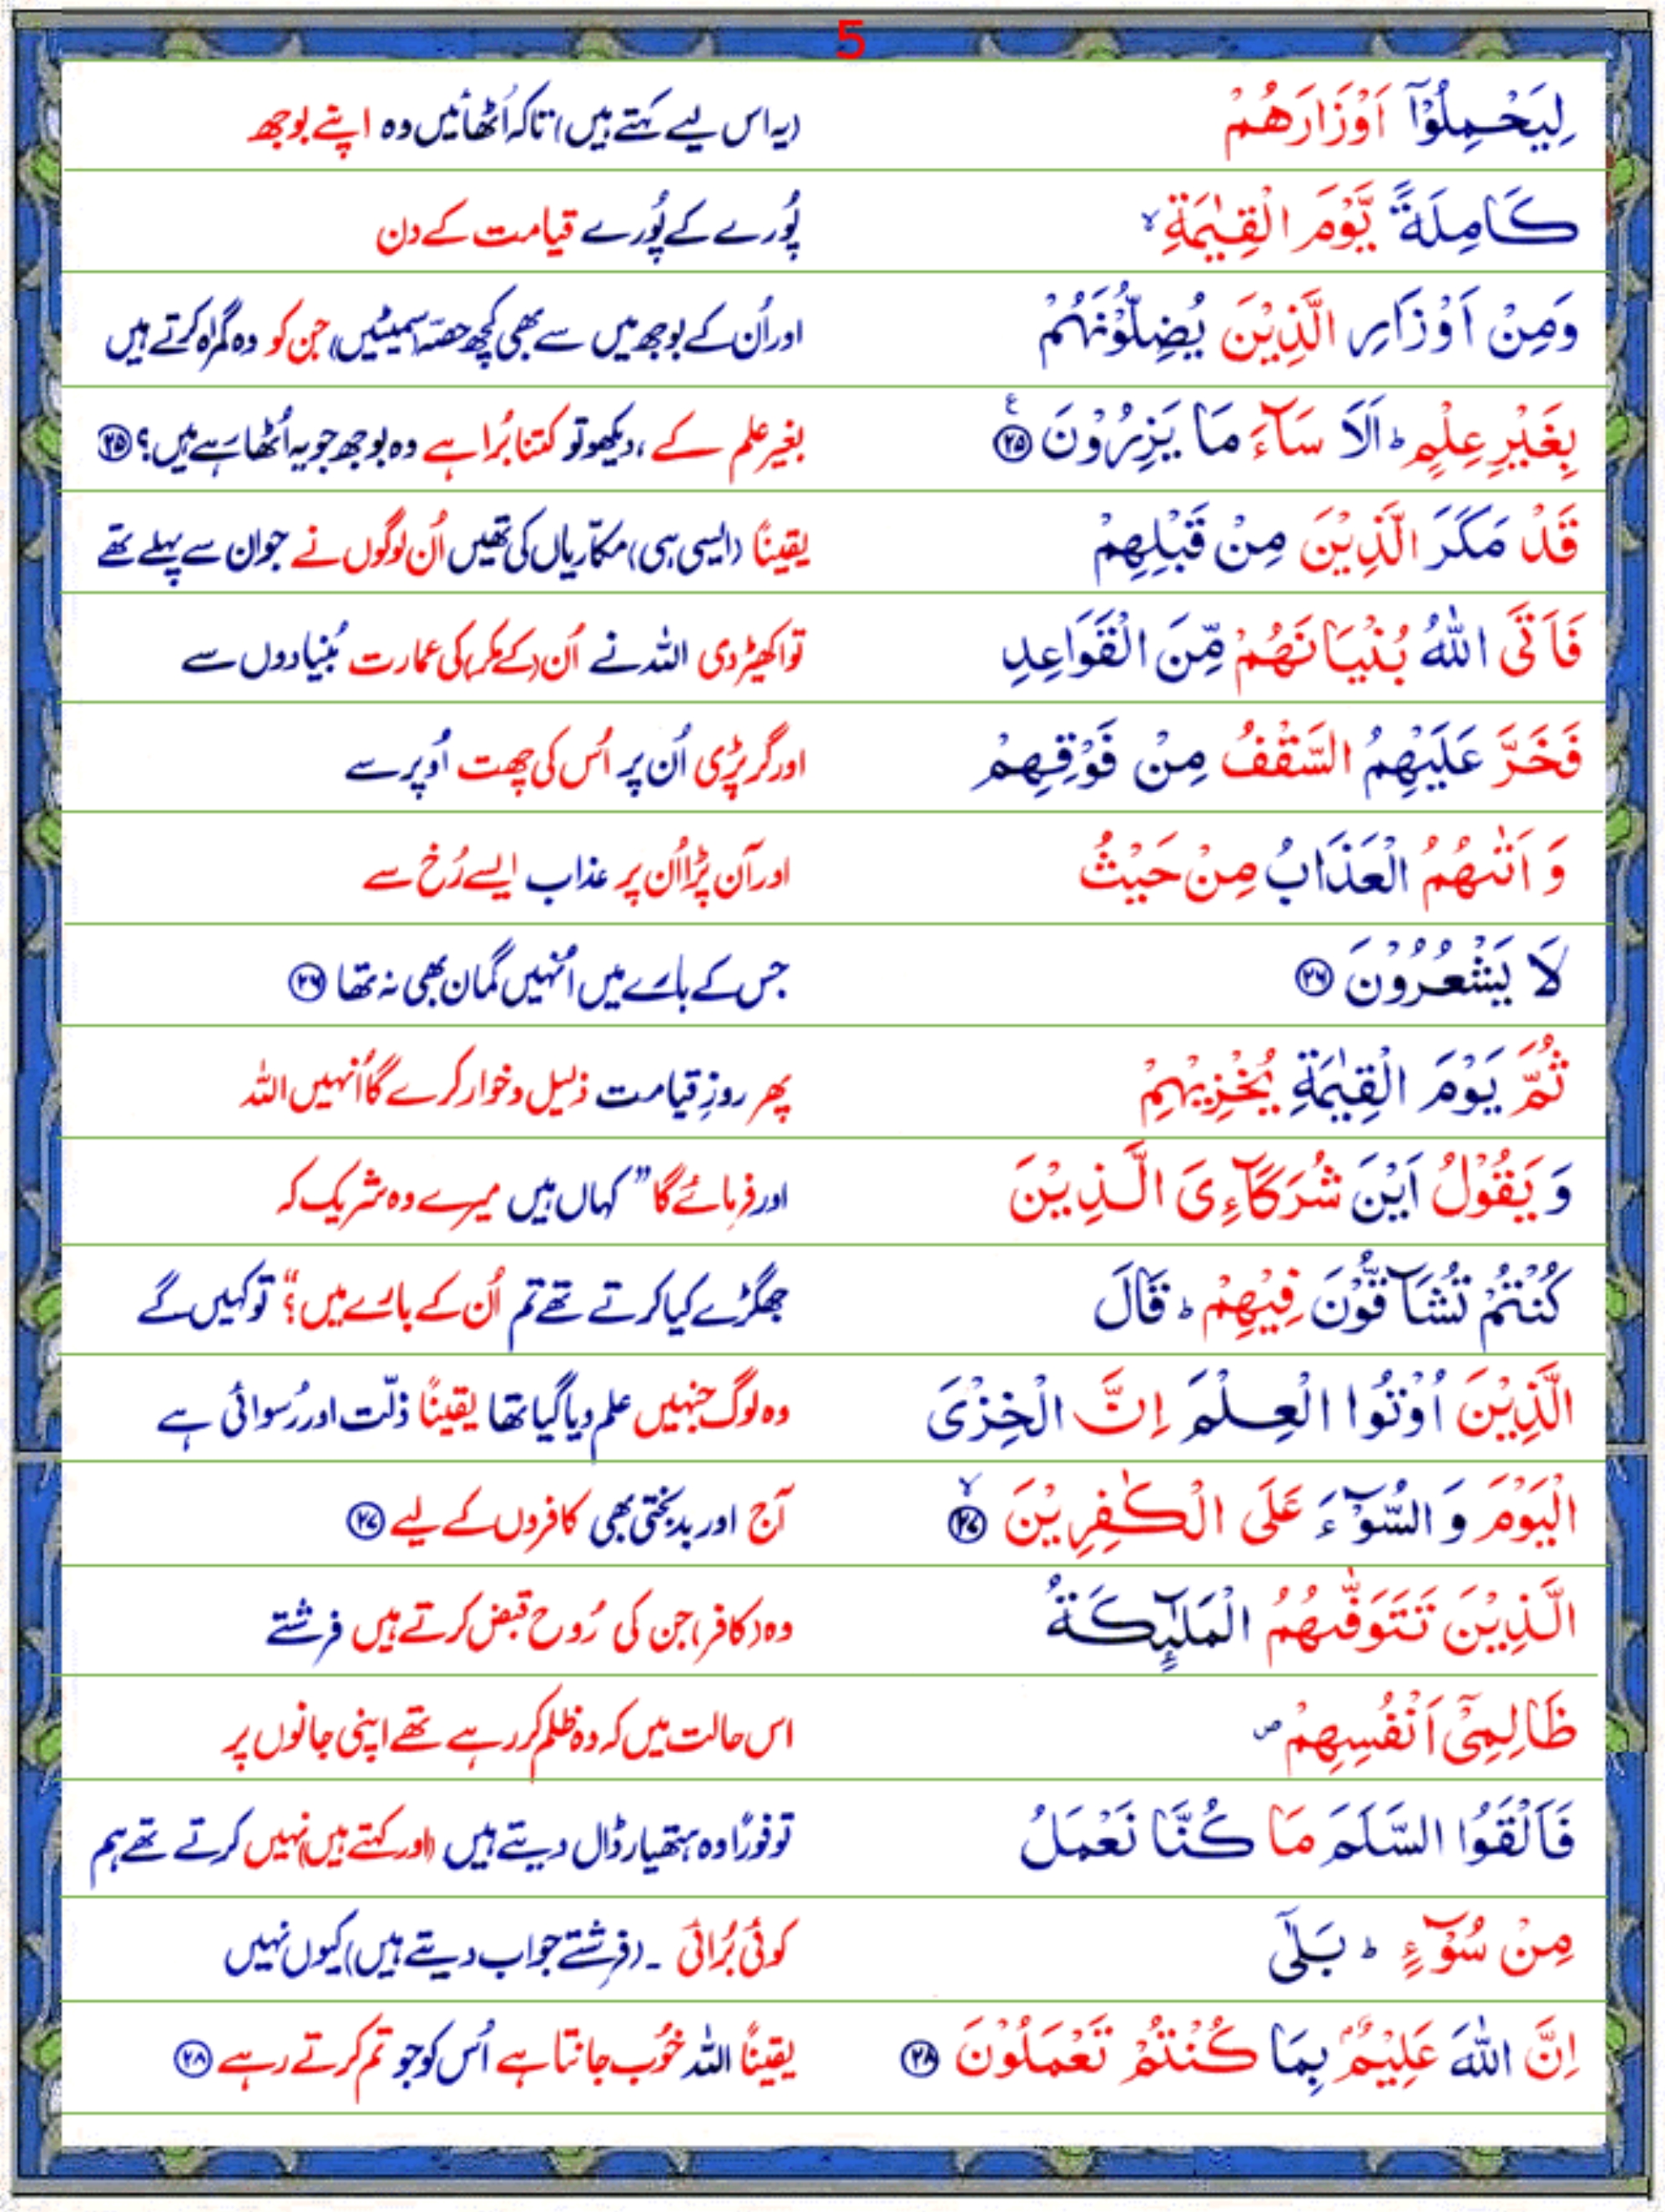 5
لِيَحْمِلُوْٓا اَوْزَارَهُمْ (یہ اس لیے کہتے ہیں) تاکہ اُٹھائیں وہ اپنے بوجھ
كَامِلَةً يَّوْمَ الْقِيٰمَةِ ۙ پُورے کے پُورے قیامت کے دن
وَمِنْ اَوْزَارِ الَّذِيْنَ يُضِلُّوْنَهُمْ اور اُن کے بوجھ میں سے بھی کچھ حصّہ (سمیٹیں) جن کو وہ گمراہ کرتے ہیں
بِغَيْرِ عِلْمٍ ؕ اَلَا سَآءَ مَا يَزِرُوْنَ ۧ ﴿۲۵﴾ بغیر علم کے، دیکھو تو کتنا بُرا ہے وہ بوجھ جو یہ اُٹھا رہے ہیں؟ ﴿۲۵﴾
قَدْ مَكَرَ الَّذِيْنَ مِنْ قَبْلِهِمْ یقیناً (ایسی ہی) مکّاریاں کی تھیں اُن لوگوں نے جو ان سے پہلے تھے
فَاَتَى اللّٰهُ بُنْيَانَهُمْ مِّنَ الْقَوَاعِدِ تو اکھیڑ دی اللہ نے اُن (کے مکر) کی عمارت بُنیادوں سے
فَخَرَّ عَلَيْهِمُ السَّقْفُ مِنْ فَوْقِهِمْ اور گر پڑی اُن پر اُس کی چھت اُوپر سے
وَ اَتٰىهُمُ الْعَذَابُ مِنْ حَيْثُ اور آن پڑا اُن پر عذاب ایسے رُخ سے
لَا يَشْعُرُوْنَ ﴿۲۶﴾ جس کے بارے میں اُنہیں گمان بھی نہ تھا ﴿۲۶﴾
ثُمَّ يَوْمَ الْقِيٰمَةِ يُخْزِيْهِمْ پھر روزِ قیامت ذلیل و خوار کرے گا اُنہیں اللہ
وَ يَقُوْلُ اَيْنَ شُرَكَآءِىَ الَّذِيْنَ اور فرمائے گا ” کہاں ہیں میرے وہ شریک کہ
كُنْتُمْ تُشَآقُّوْنَ فِيْهِمْ ؕ قَالَ جھگڑے کیا کرتے تھے تم اُن کے بارے میں؟“ تو کہیں گے
الَّذِيْنَ اُوْتُوا الْعِلْمَ اِنَّ الْخِزْىَ وہ لوگ جنہیں علم دیا گیا تھا یقیناً ذلّت اور رُسوائی ہے
الْيَوْمَ وَ السُّوْٓءَ عَلَى الْكٰفِرِيْنَ ۙ ﴿۲۷﴾ آج اور بدبختی بھی کافروں کے لیے ﴿۲۷﴾
الَّذِيْنَ تَتَوَفّٰىهُمُ الْمَلٰٓئِكَةُ وہ (کافر) جن کی رُوح قبض کرتے ہیں فرشتے
ظَالِمِىْٓ اَنْفُسِهِمْ ص اس حالت میں کہ وہ ظلم کر رہے تھے اپنی جانوں پر
فَاَلْقَوُا السَّلَمَ مَا كُنَّا نَعْمَلُ تو فورًا وہ ہتھیار ڈال دیتے ہیں (اور کہتے ہیں) نہیں کرتے تھے ہم
مِنْ سُوْٓءٍ ؕ بَلٰٓى کوئی بُرائی ۔ (فرشتے جواب دیتے ہیں) کیوں نہیں
اِنَّ اللّٰهَ عَلِيْمٌۢ بِمَا كُنْتُمْ تَعْمَلُوْنَ ﴿۲۸﴾ یقیناً اللہ خُوب جانتا ہے اُس کو جو تم کرتے رہے ﴿۲۸﴾